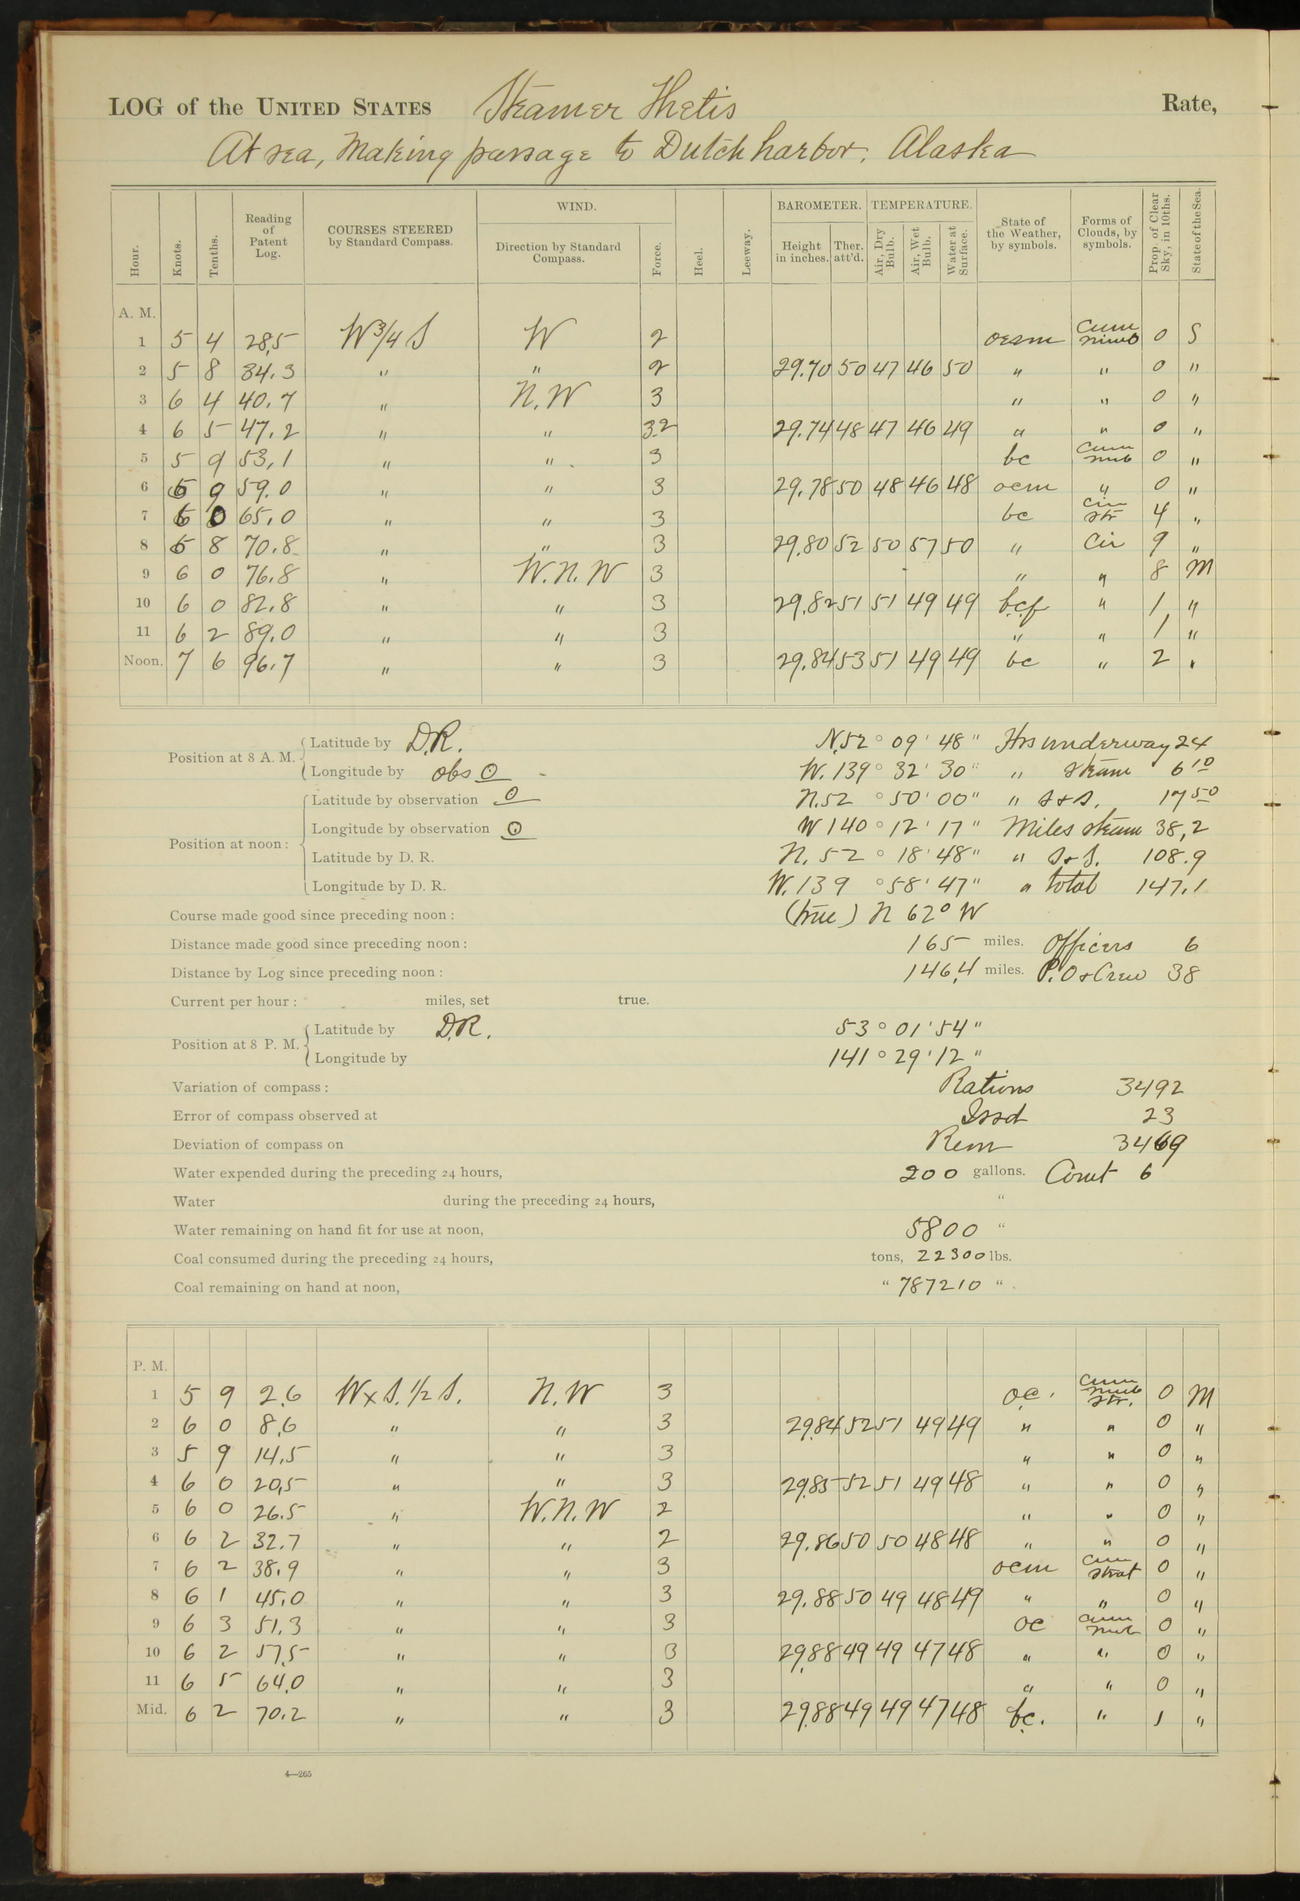 LOG of the UNITED STATES Steamer Thetis Rate,
At sea, Making passage to Dutch harbor, Alaska
Hour. Knots. Tenths. Reading of Patent Log. COURSES STEERED by Standard Compass. WIND. Direction by Standard Compass. Force. Heel. Leeway. BAROMETER. Height in inches. Ther. att'd. TEMPERATURE. Air, Dry Bulb. Air, Wet Bulb. Water at Surface. State of the Weather, by symbols. Forms of Clouds, by symbols. Prop. of Clear Sky, in 10ths. State of the Sea.
A. M.
1 5 4 28,5 W 3/4 S W 2 Cum nimb 0 S
2 5 8 34.3 " " 2 29.70 50 47 46 50 " " 0 "
3 6 4 40.7 " N.W 3 " " 0 "
4 6 5 47.2 " " 3.2 29.74 48 47 46 49 " " 0 "
5 5 9 53,1 " " 3 bc Cum nub 0 "
6 5 9 59.0 " " 3 29.78 50 48 46 48 ocm " 0 "
7 6 0 65,0 " " 3 bc Cirr Str 4 "
8 5 8 70.8 " " 3 29.80 52 50 57 50 " Cir 9 "
9 6 0 76.8 " W.N.W 3 " " 8 M
10 6 0 82.8 " " 3 29.82 51 51 49 49 bcf " 1 "
11 6 2 89.0 " " 3 " " 1 "
Noon. 7 6 96.7 " " 3 29.84 53 51 49 49 bc " 2 "
Position at 8 A. M. Latitude by D.R. N.52° 09' 48" Hrs underway 24
Longitude by obs ⊙ W. 139° 32' 30" " steam 6 10
Position at noon: Latitude by observation ⊙ N.52° 50' 00" " S & S. 17 50
Longitude by observation ⊙ W 140° 12' 17" Miles steam 38,2
Latitude by D. R. N. 52° 18' 48" " S & S. 108.9
Longitude by D. R. W. 139° 58' 47" " total 147.1
Course made good since preceding noon: (true) N 62° W
Distance made good since preceding noon: 165 miles. Officers 6
Distance by Log since preceding noon: 146,4 miles. P.O & Crew 38
Current per hour: miles, set true.
Position at 8 P. M. Latitude by D.R. 53° 01' 54"
Longitude by 141° 29' 12"
Variation of compass: Rations 3492
Error of compass observed at Issd 23
Deviation of compass on Rem 3469
Water expended during the preceding 24 hours, 200 gallons. Comt 6
Water during the preceding 24 hours, "
Water remaining on hand fit for use at noon, 5800 "
Coal consumed during the preceding 24 hours, tons, 22300 lbs.
Coal remaining on hand at noon, " 787210 "
P. M.
1 5 9 2.6 W x S. 1/2 S. N.W 3 oc. Cum nub str. 0 M
2 6 0 8,6 " " 3 29.84 52 51 49 49 " " 0 "
3 5 9 14,5 " " 3 " " 0 "
4 6 0 20,5 " " 3 29.85 52 51 49 48 " " 0 "
5 6 0 26.5 " W.N.W 2 " " 0 "
6 6 2 32.7 " " 2 29.86 50 50 48 48 " " 0 "
7 6 2 38.9 " " 3 ocm Cum Strat 0 "
8 6 1 45.0 " " 3 29.88 50 49 48 49 " " 0 "
9 6 3 51.3 " " 3 oc Cum nub 0 "
10 6 2 57,5 " " 3 29.88 49 49 47 48 " " 0 "
11 6 5 64.0 " " 3 " " 0 "
Mid. 6 2 70.2 " " 3 29.88 49 49 47 48 bc. " 1 "
4—265